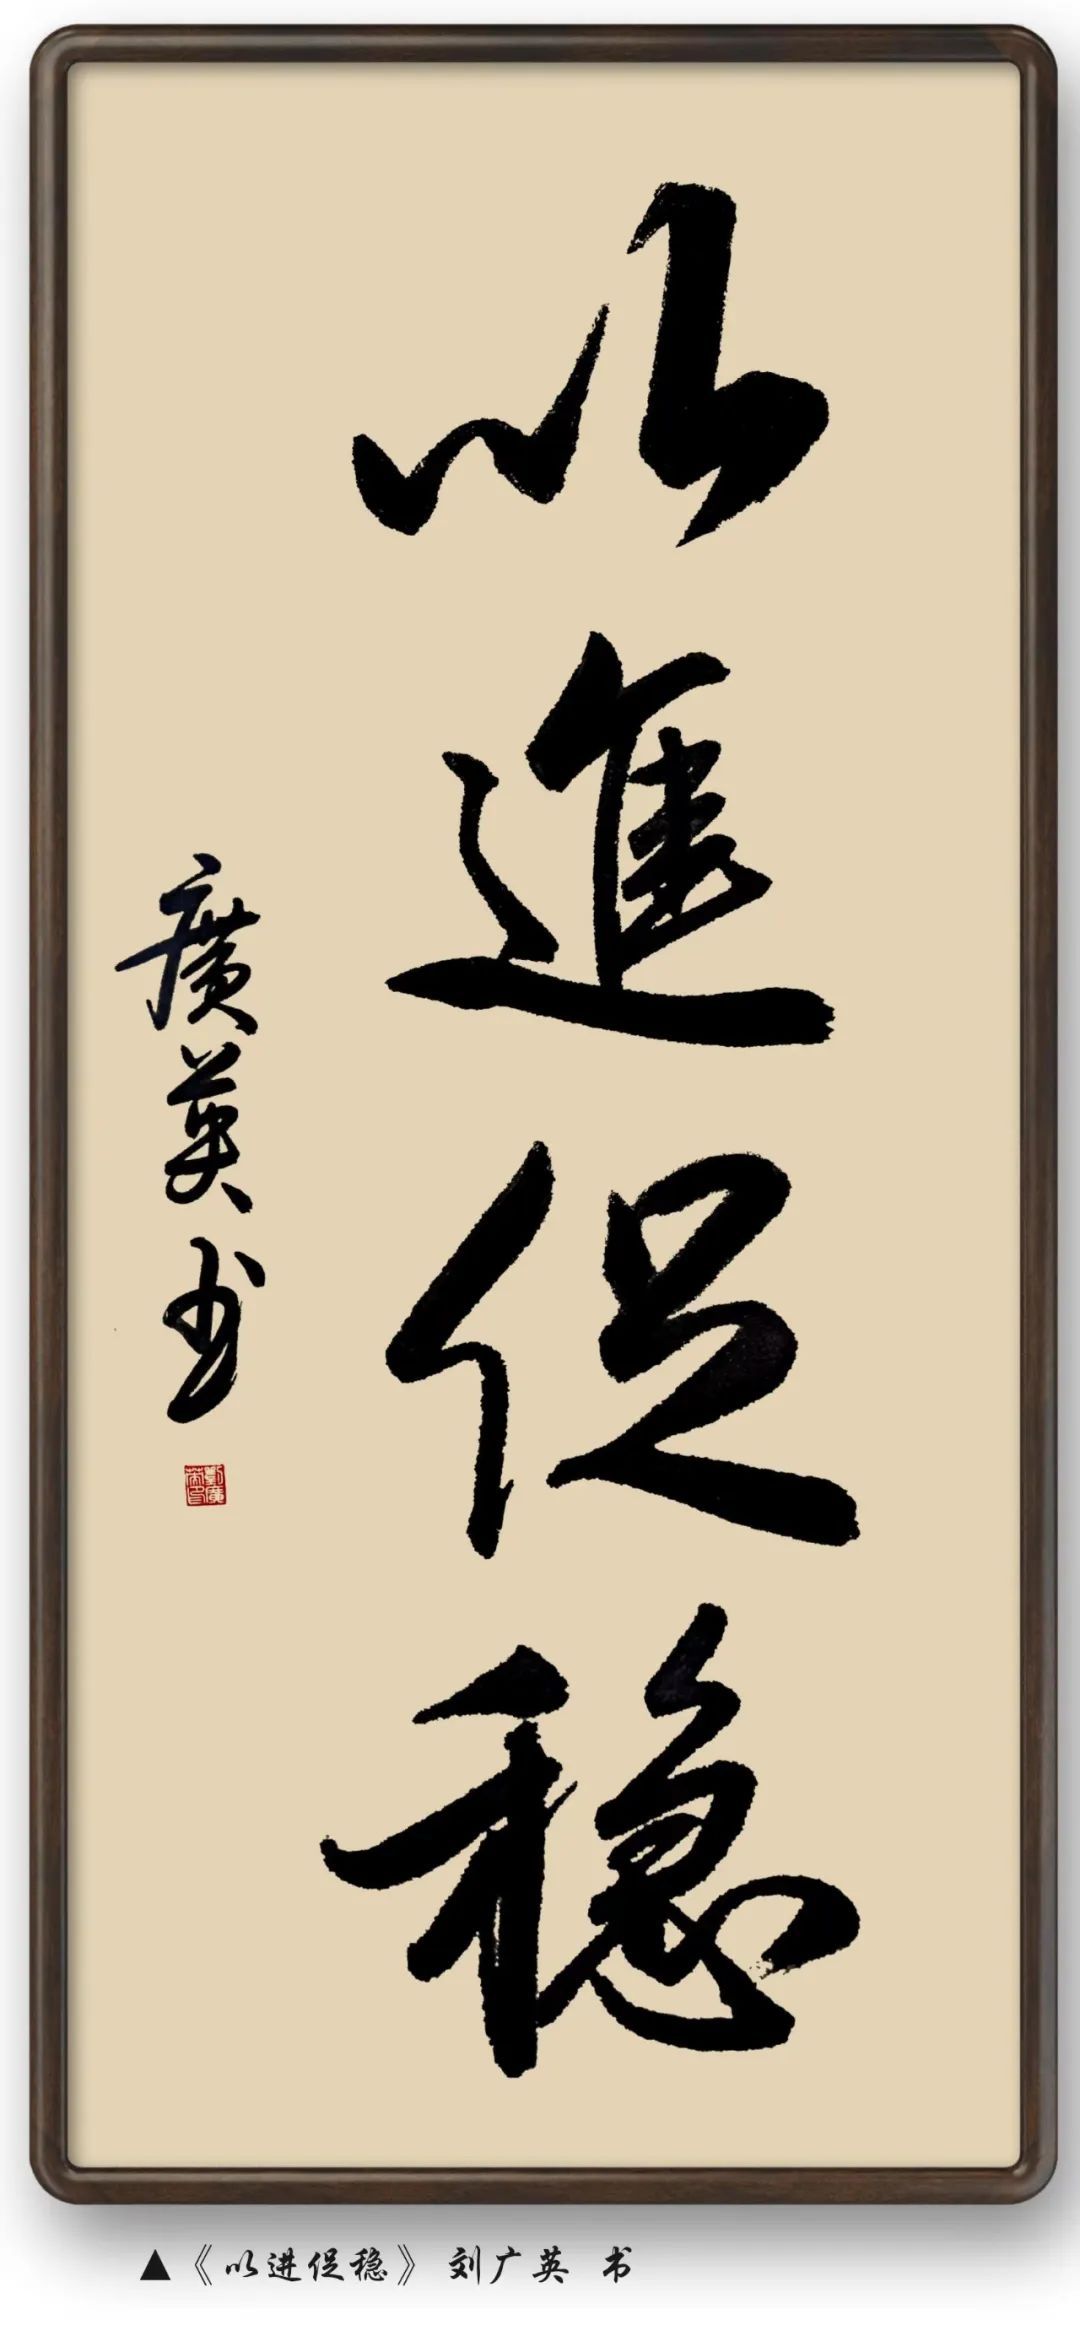 以進促稳
廣英书
劉廣英印
▲《以进促稳》 刘广英 书